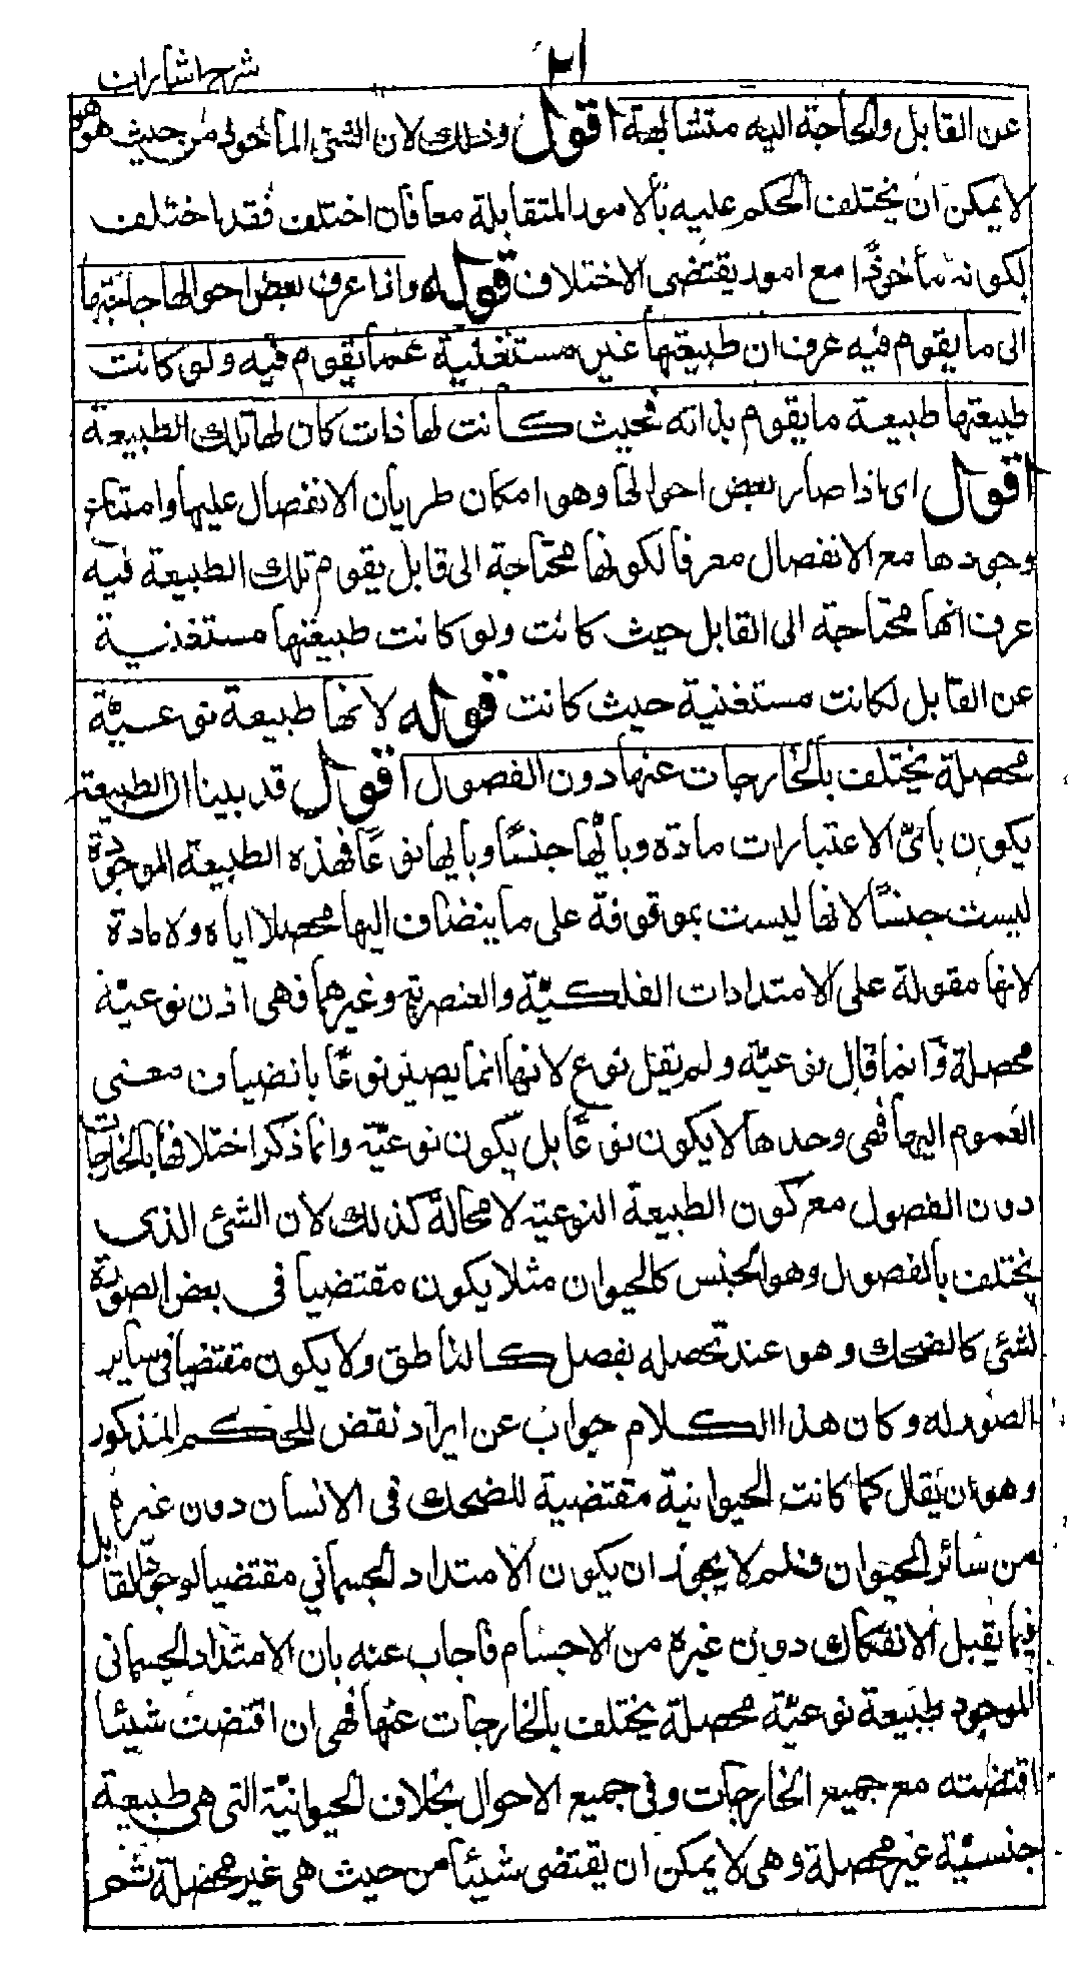 ٢١
شرح اشارات
عن القابل والحاجة اليه متشابهة اقول وذلك لان الشئ المأخوذ من حيث هو هو
لا يمكن ان يختلف الحكم عليه بالامور المتقابلة معا فان اختلف فقد اختلف
لكونه مأخوذا مع امور يقتضى الاختلاف قوله واذا عرف بعض احوالها حاجتها
الى ما يقوم فيه عرف ان طبيعتها غير مستغنية عما يقوم فيه ولو كانت
طبيعتها طبيعة ما يقوم بذاته فحيث كانت لها ذات كان لها تلك الطبيعة
اقول اى اذا صار بعض احوالها وهو امكان طريان الانفصال عليها وامتناع
وجودها مع الانفصال معرفا لكونها محتاجة الى قابل يقوم تلك الطبيعة فيه
عرف انها محتاجة الى القابل حيث كانت ولو كانت طبيعتها مستغنية
عن القابل لكانت مستغنية حيث كانت قوله لانها طبيعة نوعيّة
محصلة يختلف بالخارجات عنها دون الفصول اقول قد بينا ان الطبيعة
يكون باىّ الاعتبارات مادة وبايّها جنسًا وبايها نوعًا فهذه الطبيعة الموجودة
ليست جنسًا لانها ليست بموقوفة على ما ينضاف اليها محصلا اياه ولا مادة
لانها مقولة على الامتدادات الفلكيّة والعنصرية وغيرهما فهى اذن نوعيّة
محصلة وانما قال نوعيّة ولم يقل نوع لانها انما يصير نوعًا بانضياف معنى
العموم اليها فهى وحدها لا يكون نوعًا بل يكون نوعيّة وانما ذكر اختلافها بالخارجات
دون الفصول مع كون الطبيعة النوعية لا محالة كذلك لان الشئ الذى
يختلف بالفصول وهو الجنس كالحيوان مثلا يكون مقتضيا فى بعض الصورة
لشئ كالضحك وهو عند تحصله بفصل كالناطق ولا يكون مقتضيا فى ساير
الصور له وكان هذا الكلام جواب عن ايراد نقض للحكم المذكور
وهو ان يقال كما كانت الحيوانية مقتضية للضحك فى الانسان دون غيره
من سائر الحيوان فلم لا يجوز ان يكون الامتداد الجسمانى مقتضيا لوجود القابل
فيما يقبل الانفكاك دون غيره من الاجسام فاجاب عنه بان الامتداد الجسمانى
الموجود طبيعة نوعيّة محصلة يختلف بالخارجات عنها فهى ان اقتضت شيئا
اقتضته مع جميع الخارجات وفى جميع الاحوال بخلاف الحيوانيّة التى هى طبيعة
جنسيّة غير محصلة وهى لا يمكن ان يقتضى شيئا من حيث هى غير محصلة ثم